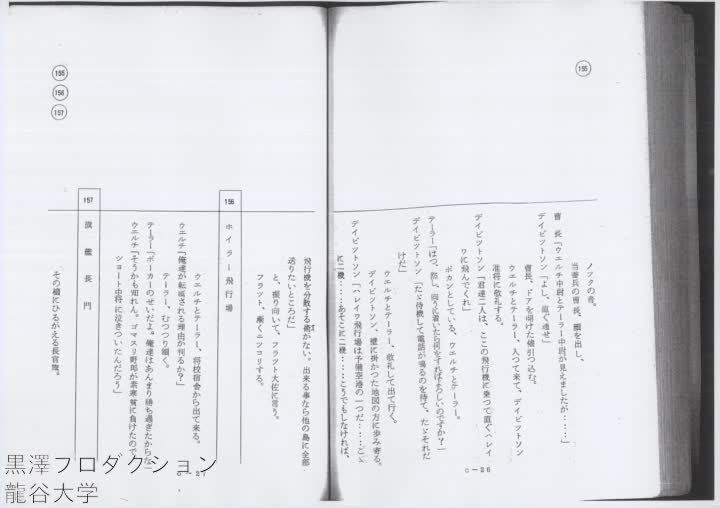 195
ノックの音。
当番兵の曹長、顔を出し、
曹長「ウエルチ中尉とテーラー中尉が見えましたが‥‥」
デイビツトソン「よし、直ぐ通せ」
曹長、ドアを明けた儘引つ込む。
ウエルチとテーラー、入つて来て、デイビツトソン
准将に敬礼する。
デイビツトソン「君達二人は、ここの飛行機に乗つて直ぐハレイ
ワに飛んでくれ」
ポカンとしている、ウエルチとテーラー。
テーラー「はつ、然し、向うに着いたら何をすればよろしいのですか?」
デイビツトソン「たゞ待機して電話が鳴るのを待て、たゞそれだ
けだ」
ウエルチとテーラー、敬礼して出て行く。
デイビツトソン、壁に掛かつた地図の方に歩み寄る。
デイビツトソン「ハレイワ飛行場は予備空港の一つだ‥‥こゝ
に二機‥‥あそこに二機‥‥こうでもしなければ、
C-26
155
156
157
飛行機を分散する術がない。出来る事なら他の島に全部
送りたいところだ」
と、振り向いて、フラツト大佐に言う。
フラツト、漸くニツコリする。
156 ホイラー飛行場
ウエルチとテーラー、将校宿舎から出て来る。
ウエルチ「俺達が転属される理由が判るか?」
テーラー、むつつり頷く。
テーラー「ポーカーのせいだよ。俺達はあんまり勝ち過ぎたからな」
ウエルチ「そうかも知れん。ゴマスリ野郎が素寒貧に負けたので
ショート中将に泣きついたんだろう」
157 旗艦長門
その檣にひるがえる長官旗。
C-27
黒澤プロダクション
龍谷大学